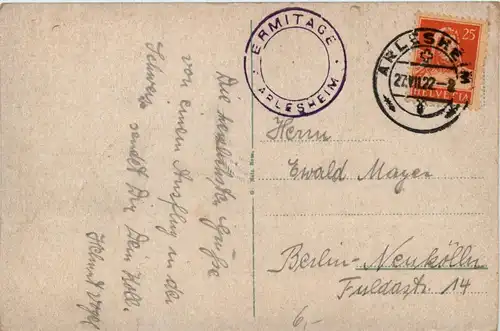 Die herzlichsten Grüße
von einem Ausflug in der
Schweiz sendet Dir Dein Koll.
Helmut
ERMITAGE
ARLESHEIM
ARLESHEIM
27.VII.22-8
25
HELVETIA
Herrn
Ewald Mayer
Berlin-Neukölln
Fuldastr. 14
6,-